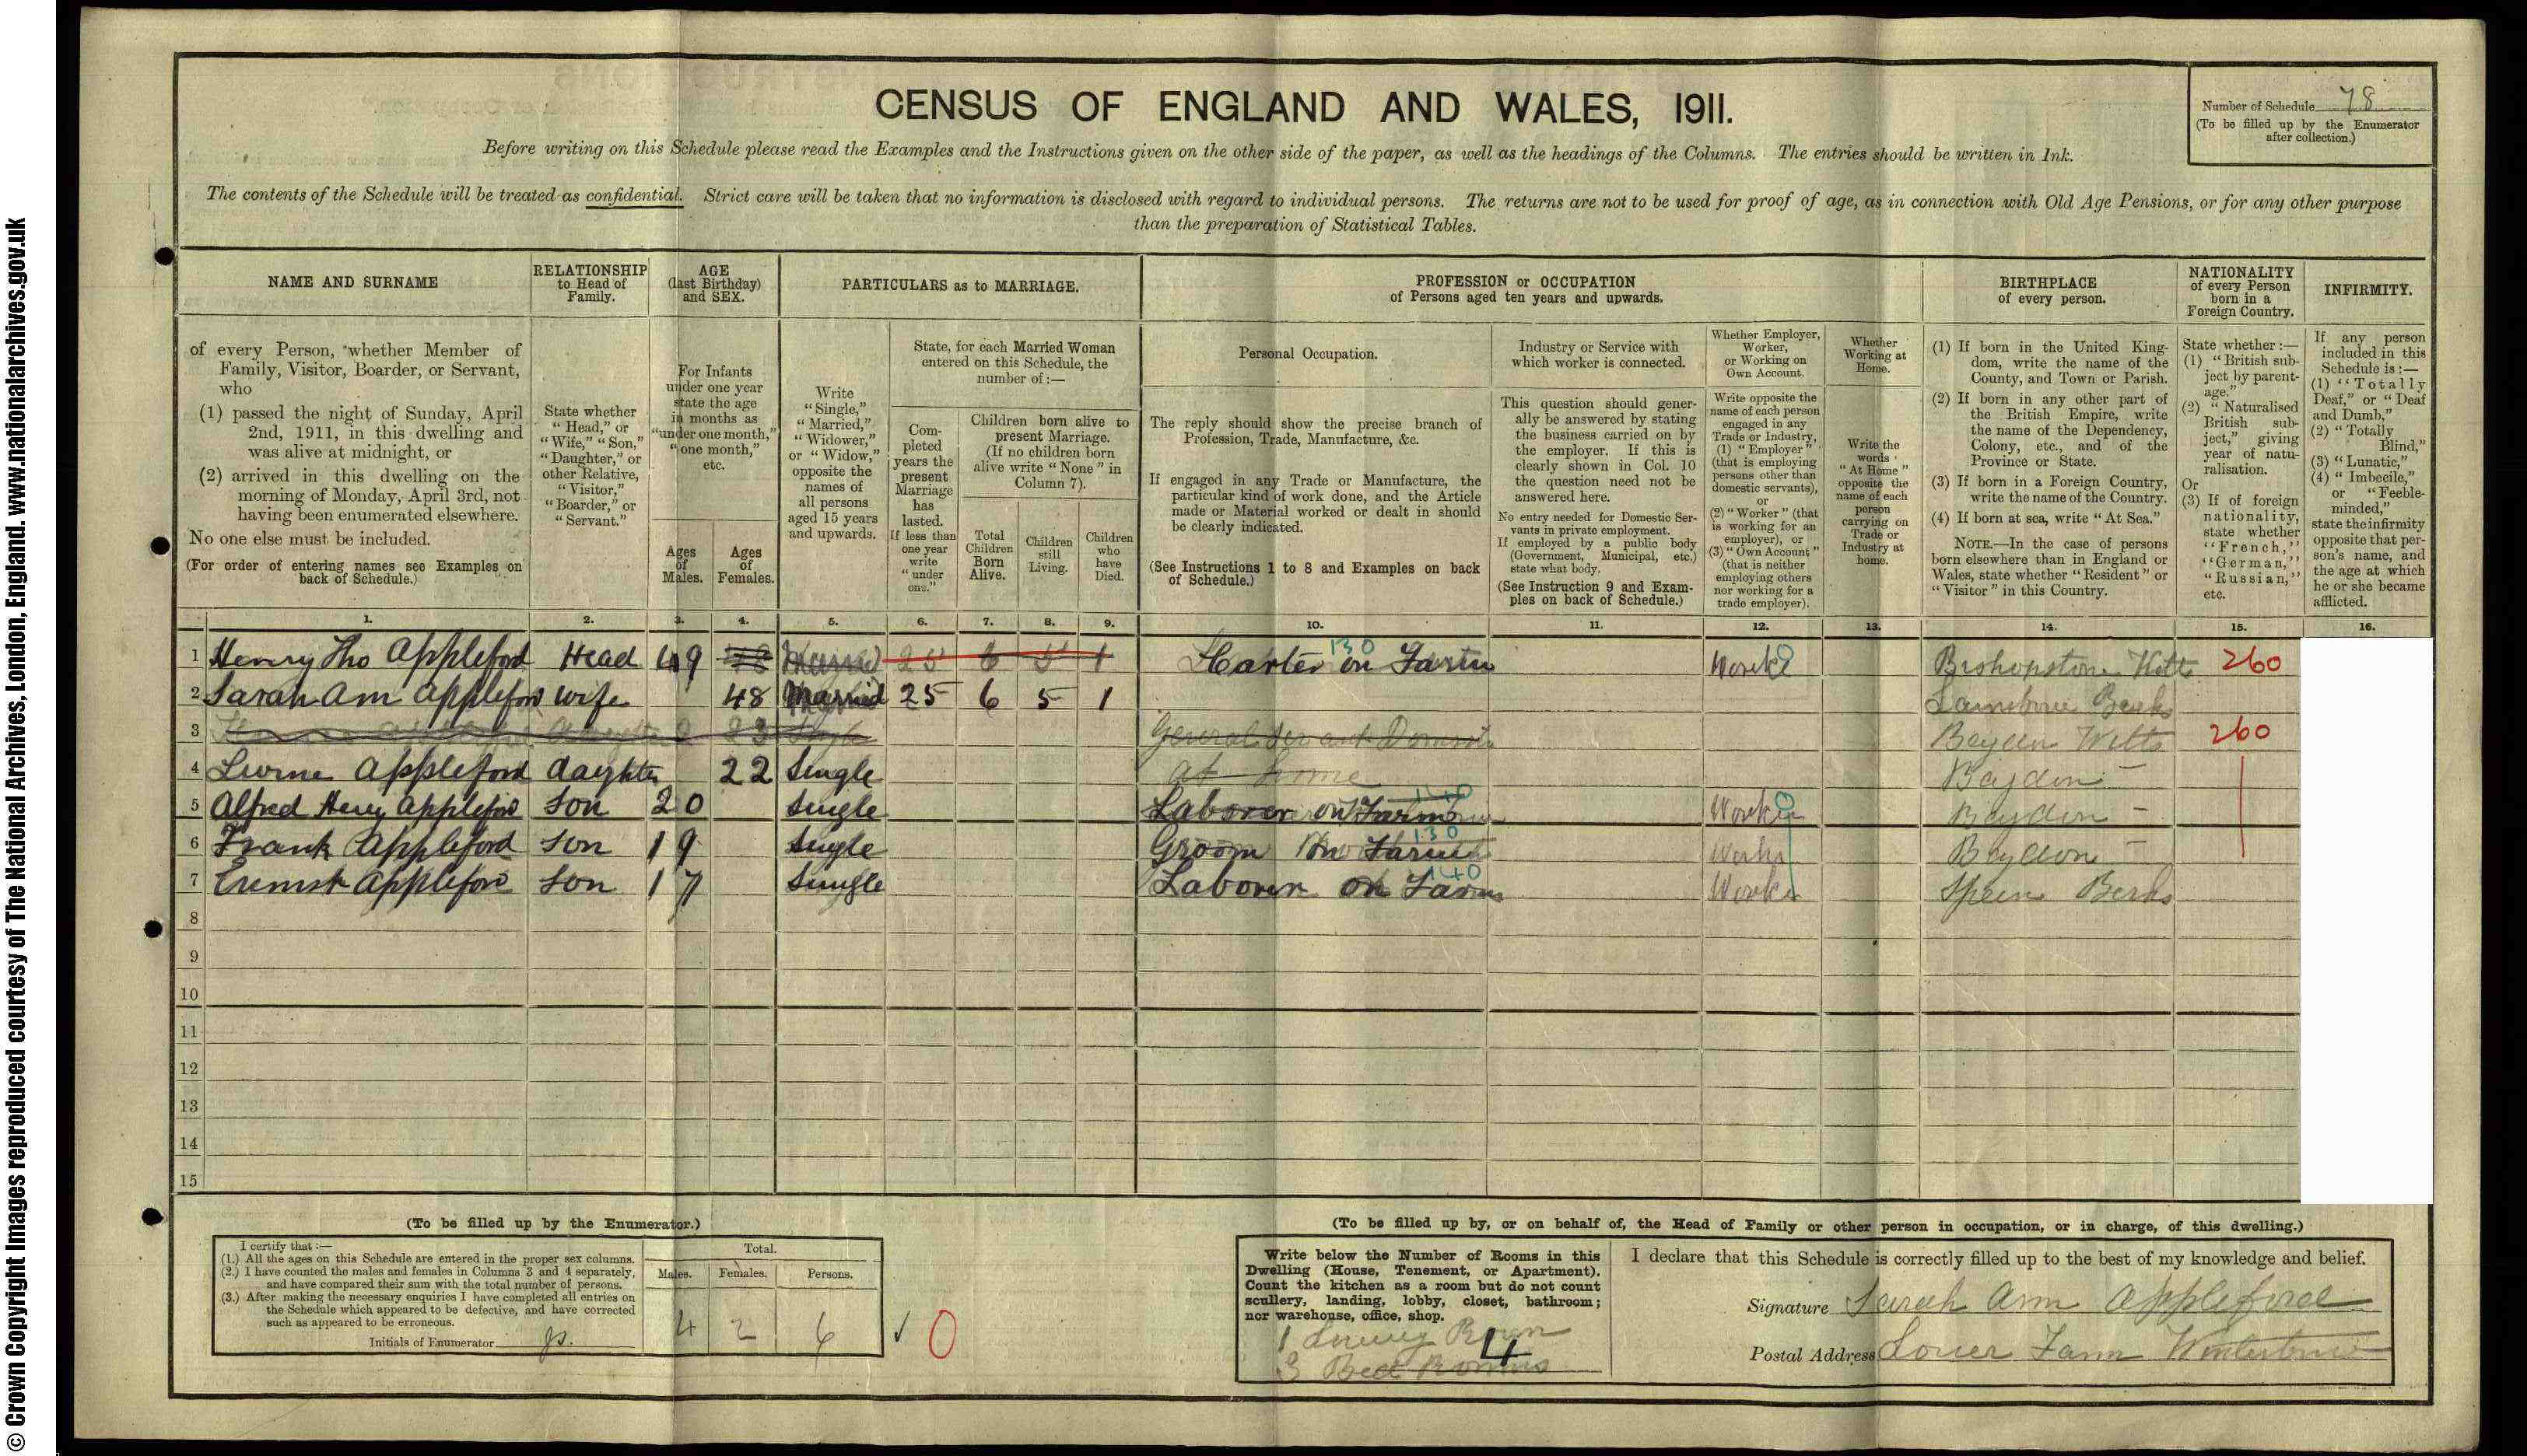 © Crown Copyright Images reproduced courtesy of The National Archives, London, England. www.nationalarchives.gov.uk
CENSUS OF ENGLAND AND WALES, 1911.
Number of Schedule 78
(To be filled up by the Enumerator
after collection.)
Before writing on this Schedule please read the Examples and the Instructions given on the other side of the paper, as well as the headings of the Columns. The entries should be written in Ink.
The contents of the Schedule will be treated as confidential. Strict care will be taken that no information is disclosed with regard to individual persons. The returns are not to be used for proof of age, as in connection with Old Age Pensions, or for any other purpose
than the preparation of Statistical Tables.
NAME AND SURNAME
of every Person, whether Member of
Family, Visitor, Boarder, or Servant,
who
(1) passed the night of Sunday, April
2nd, 1911, in this dwelling and
was alive at midnight, or
(2) arrived in this dwelling on the
morning of Monday, April 3rd, not
having been enumerated elsewhere.
No one else must be included.
(For order of entering names see Examples on
back of Schedule.)
RELATIONSHIP
to Head of
Family.
State whether
"Head," or
"Wife," "Son,"
"Daughter," or
other Relative,
"Visitor,"
"Boarder," or
"Servant."
AGE
(last Birthday)
and SEX.
For Infants
under one year
state the age
in months as
"under one month,"
"one month,"
etc.
Ages
of
Males.
Ages
of
Females.
PARTICULARS as to MARRIAGE.
Write
"Single,"
"Married,"
"Widower,"
or "Widow,"
opposite the
names of
all persons
aged 15 years
and upwards.
State, for each Married Woman
entered on this Schedule, the
number of :—
Com-
pleted
years the
present
Marriage
has
lasted.
If less than
one year
write
"under
one."
Children born alive to
present Marriage.
(If no children born
alive write "None" in
Column 7).
Total
Children
Born
Alive.
Children
still
Living.
Children
who
have
Died.
PROFESSION or OCCUPATION
of Persons aged ten years and upwards.
Personal Occupation.
The reply should show the precise branch of
Profession, Trade, Manufacture, &c.
If engaged in any Trade or Manufacture, the
particular kind of work done, and the Article
made or Material worked or dealt in should
be clearly indicated.
(See Instructions 1 to 8 and Examples on back
of Schedule.)
Industry or Service with
which worker is connected.
This question should gener-
ally be answered by stating
the business carried on by
the employer. If this is
clearly shown in Col. 10
the question need not be
answered here.
No entry needed for Domestic Ser-
vants in private employment.
If employed by a public body
(Government, Municipal, etc.)
state what body.
(See Instruction 9 and Exam-
ples on back of Schedule.)
Whether Employer,
Worker,
or Working on
Own Account.
Write opposite the
name of each person
engaged in any
Trade or Industry,
(1) "Employer"
(that is employing
persons other than
domestic servants),
or
(2) "Worker" (that
is working for an
employer), or
(3) "Own Account"
(that is neither
employing others
nor working for a
trade employer).
Whether
Working at
Home.
Write the
words
"At Home"
opposite the
name of each
person
carrying on
Trade or
Industry at
home.
BIRTHPLACE
of every person.
(1) If born in the United King-
dom, write the name of the
County, and Town or Parish.
(2) If born in any other part of
the British Empire, write
the name of the Dependency,
Colony, etc., and of the
Province or State.
(3) If born in a Foreign Country,
write the name of the Country.
(4) If born at sea, write "At Sea."
NOTE.—In the case of persons
born elsewhere than in England or
Wales, state whether "Resident" or
"Visitor" in this Country.
NATIONALITY
of every Person
born in a
Foreign Country.
State whether :—
(1) "British sub-
ject by parent-
age."
(2) "Naturalised
British sub-
ject," giving
year of natu-
ralisation.
Or
(3) If of foreign
nationality,
state whether
"French,"
"German,"
"Russian,"
etc.
INFIRMITY.
If any person
included in this
Schedule is :—
(1) "Totally
Deaf," or "Deaf
and Dumb,"
(2) "Totally
Blind,"
(3) "Lunatic,"
(4) "Imbecile,"
or "Feeble-
minded,"
state the infirmity
opposite that per-
son's name, and
the age at which
he or she became
afflicted.
1. 2. 3. 4. 5. 6. 7. 8. 9. 10. 11. 12. 13. 14. 15. 16.
1 Henry Tho Appleford Head 49 Married 25 6 5 1 Carter on Farm 130 Worker Bishopstone Wilts 260
2 Sarah Ann Appleford wife 48 Married 25 6 5 1 Berks
3 23 Single General Servant Domestic Baydon Wilts 260
4 Appleford daughter 22 Single at home Baydon
5 Alfred Henry Appleford son 20 Single Laborer on Farm 140 Worker Baydon
6 Frank Appleford son 19 Single Groom on Farm 130 Worker Baydon
7 Appleford son 17 Single Laborer on Farm 140 Worker Speen Berks
8
9
10
11
12
13
14
15
(To be filled up by the Enumerator.)
I certify that :—
(1.) All the ages on this Schedule are entered in the proper sex columns.
(2.) I have counted the males and females in Columns 3 and 4 separately,
and have compared their sum with the total number of persons.
(3.) After making the necessary enquiries I have completed all entries on
the Schedule which appeared to be defective, and have corrected
such as appeared to be erroneous.
Initials of Enumerator
Total.
Males. Females. Persons.
4 2 6 ✓ 0
(To be filled up by, or on behalf of, the Head of Family or other person in occupation, or in charge, of this dwelling.)
Write below the Number of Rooms in this
Dwelling (House, Tenement, or Apartment).
Count the kitchen as a room but do not count
scullery, landing, lobby, closet, bathroom;
nor warehouse, office, shop.
1 Room
3 Bed Rooms
4
I declare that this Schedule is correctly filled up to the best of my knowledge and belief.
Signature Sarah Ann Appleford
Postal Address Lower Farm Winterbourne